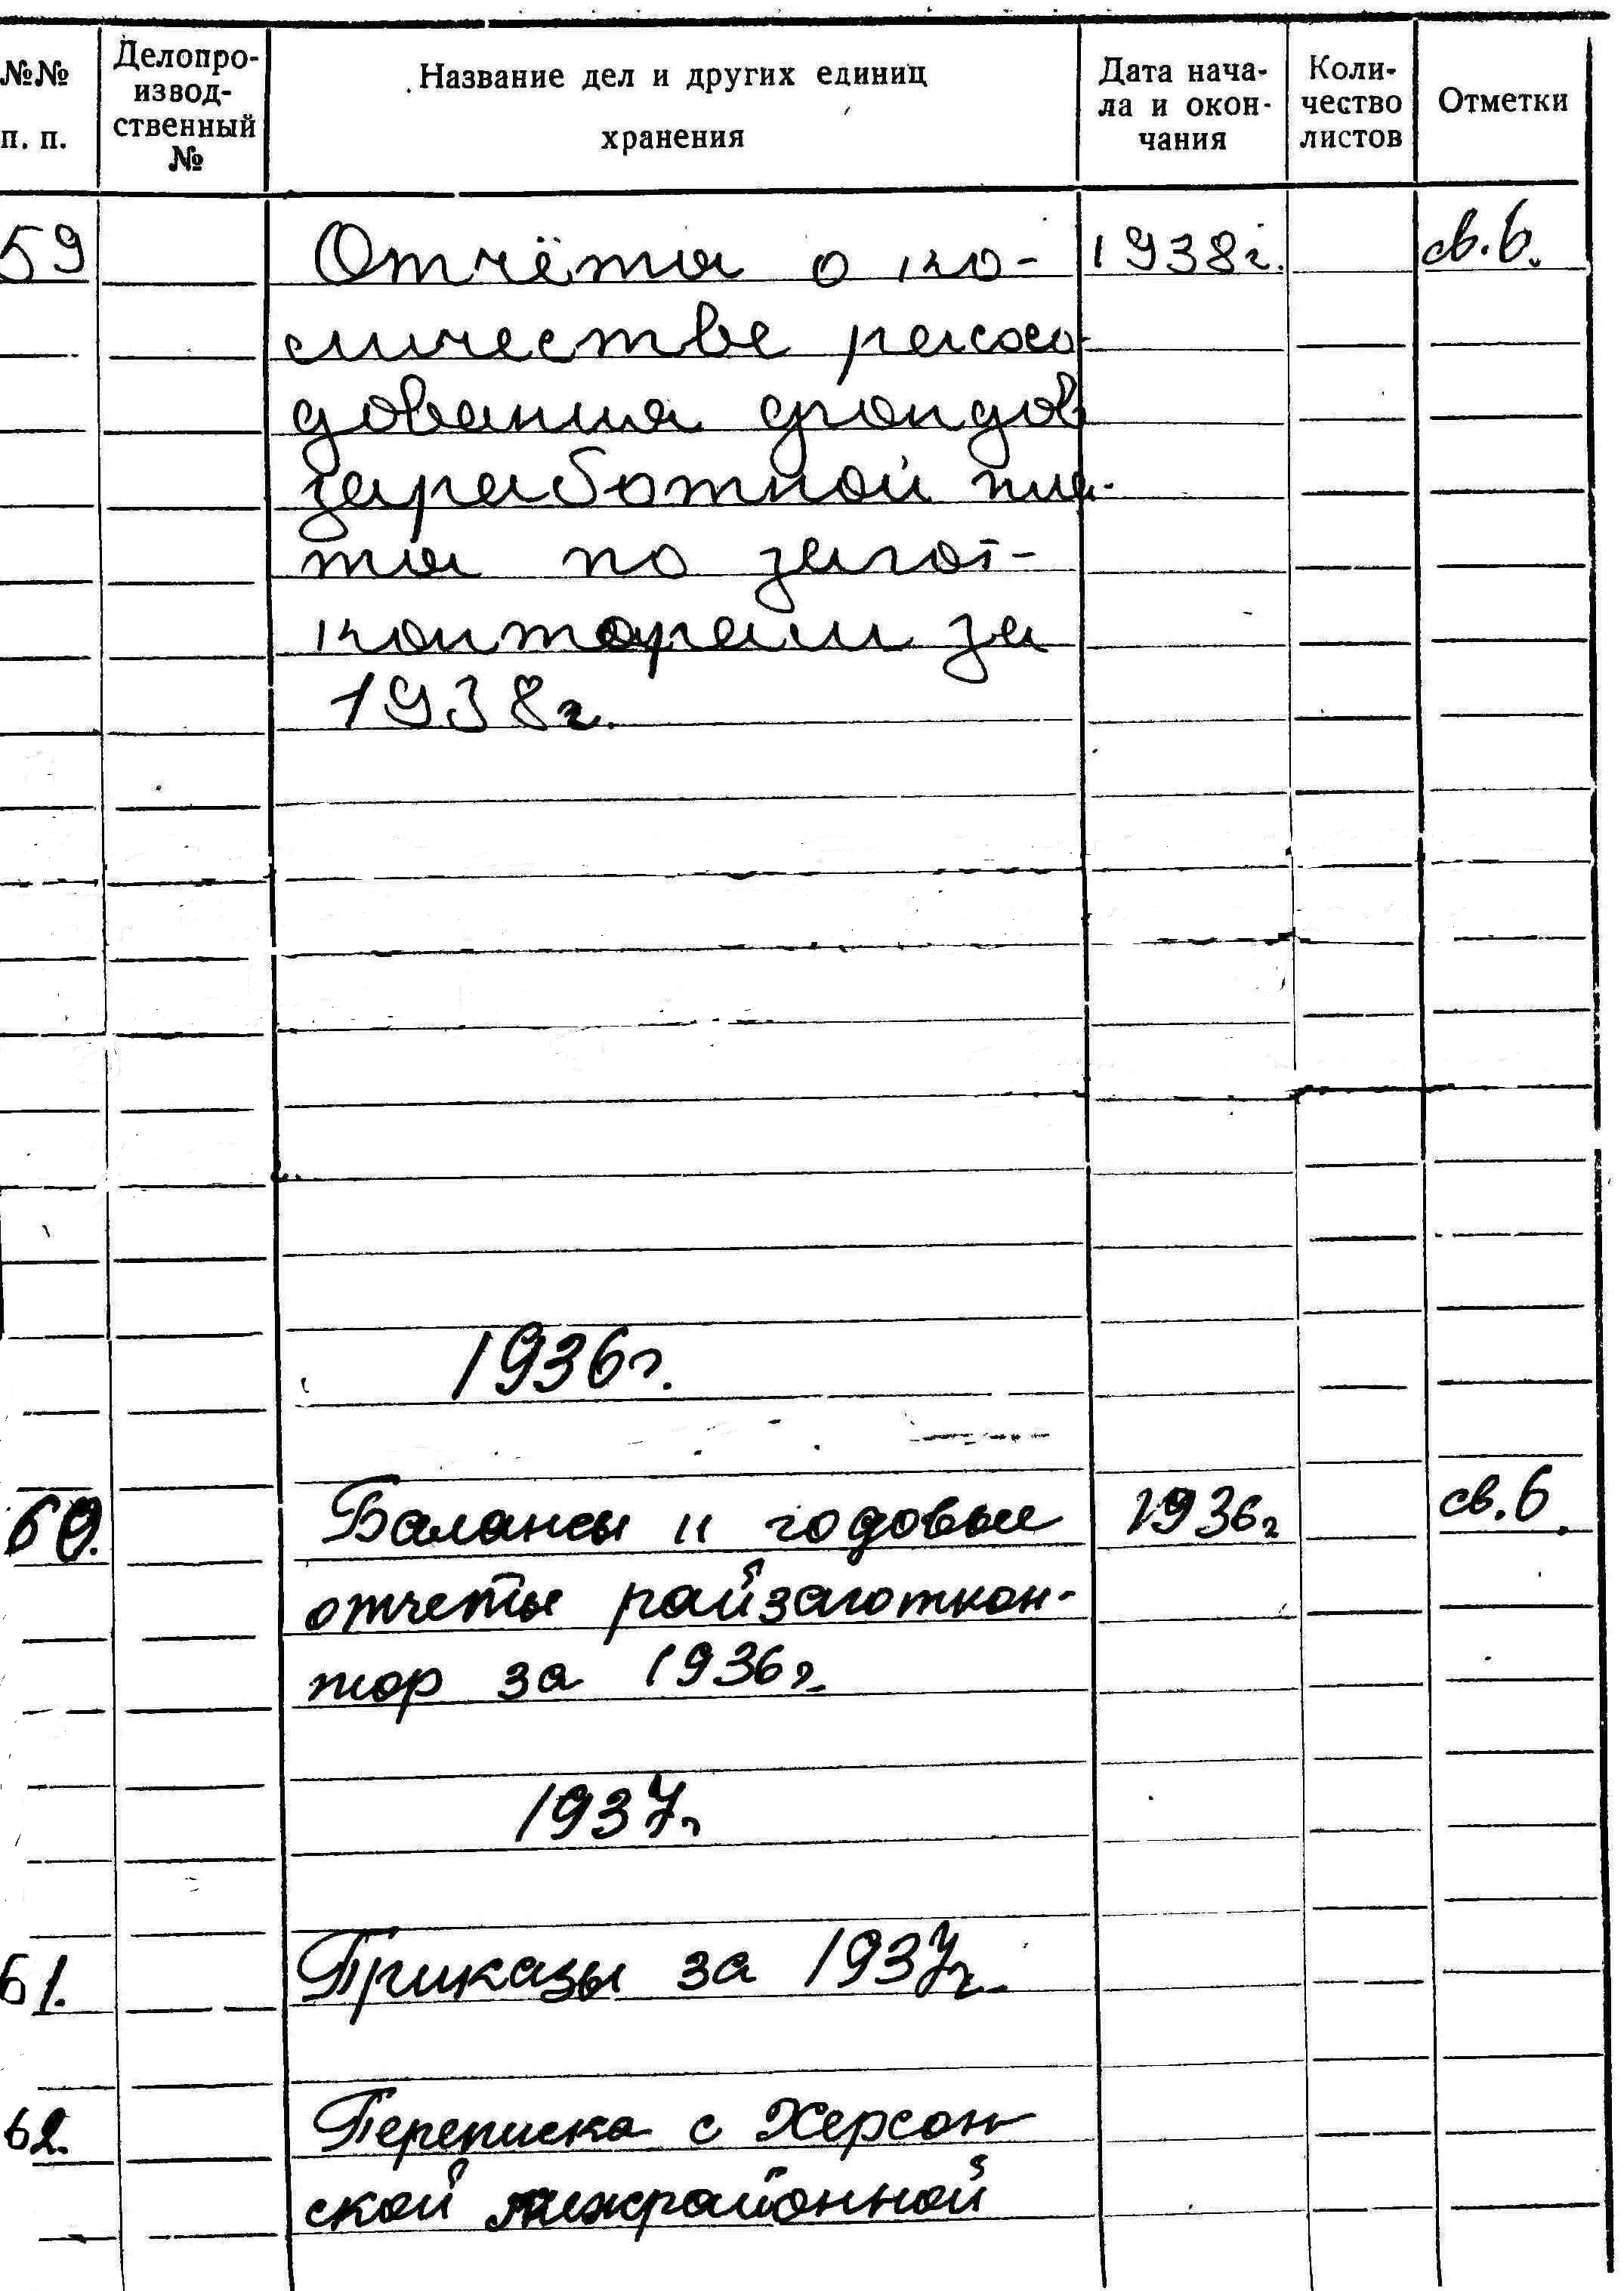 №№ п. п.
Делопро-
извод-
ственный
№
Название дел и других единиц
хранения
Дата нача-
ла и окон-
чания
Коли-
чество
листов
Отметки
59 Отчёты о ко- 1938г. св. 6.
личестве расхо-
дования фондов
заработной пла-
ты по загот-
конторам за
1938г.
1936г.
60. Балансы и годовые 1936г св. 6.
отчеты райзаготкон-
тор за 1936г.
1937г.
61. Приказы за 1937г.
62. Переписка с Херсон
ской межрайонной